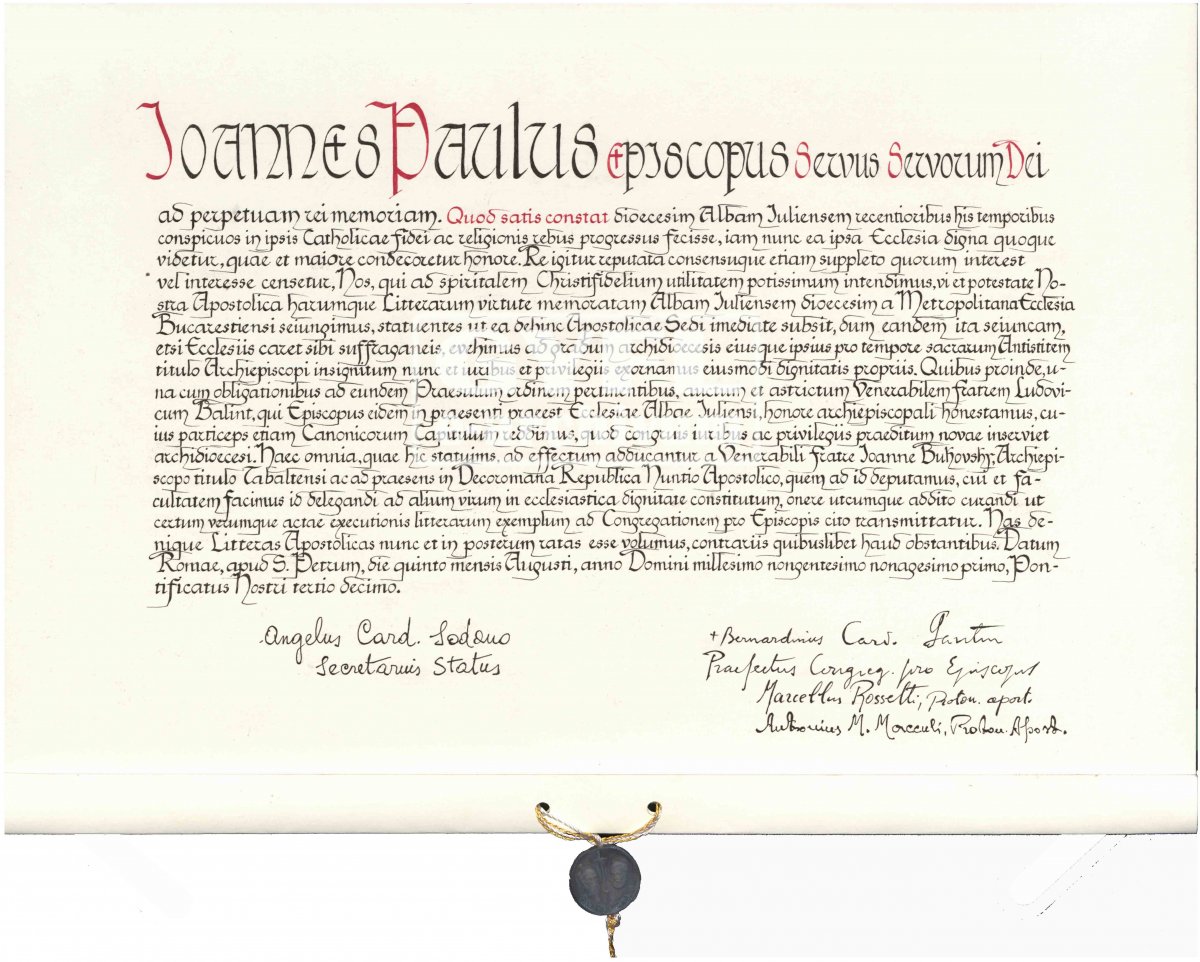 Ioannes Paulus Episcopus Servus Servorum Dei
ad perpetuam rei memoriam. Quod satis constat dioecesim Albam Iuliensem recentioribus his temporibus
conspicuos in ipsis Catholicae fidei ac religionis rebus progressus fecisse, iam nunc ea ipsa Ecclesia digna quoque
videtur, quae et maiore condecoretur honore. Re igitur reputata consensuque etiam suppleto quorum interest
vel interesse censetur, Nos, qui ad spiritalem Christifidelium utilitatem potissimum intendimus, vi et potestate No-
stra Apostolica harumque Litterarum virtute memoratam Albam Iuliensem dioecesim a Metropolitana Ecclesia
Bucarestiensi seiungimus, statuentes ut ea dehinc Apostolicae Sedi imediate subsit, dum eandem ita seiuncam,
etsi Ecclesiis caret sibi suffraganeis, evehimus ad gradum archidioecesis eiusque ipsius pro tempore sacrarum Antistitem
titulo Archiepiscopi insignitum nunc et iuribus et privilegiis exornamus eiusmodi dignitatis propriis. Quibus proinde, u-
na cum obligationibus ad eundem Praesulum ordinem pertinentibus, auctum et astrictum Venerabilem fratrem Ludovi-
cum Balint, qui Episcopus eidem in praesenti praeest Ecclesiae Albae Iuliensi, honore archiepiscopali honestamus, cu-
ius particeps etiam Canonicorum Capitulum reddimus, quod congruis iuribus ac privilegiis praeditum novae inserviet
archidioecesi. Haec omnia, quae hic statuims, ad effectum adducantur a Venerabili fratre Ioanne Bukovsky, Archiepi-
scopo titulo Tabaltensi ac ad praesens in Decoromana Republica Nuntio Apostolico, quem ad id deputamus, cui et fa-
cultatem facimus id delegandi ad alium virum in ecclesiastica dignitate constitutum, onere utcumque addito curandi ut
certum verumque actae executionis litterarum exemplum ad Congregationem pro Episcopis cito transmittatur. Has de-
nique Litteras Apostolicas nunc et in posterum ratas esse volumus, contrariis quibuslibet haud obstantibus. Datum
Romae, apud S. Petrum, die quinto mensis Augusti, anno Domini millesimo nongentesimo nonagesimo primo, Pon-
tificatus Nostri tertio decimo.
Angelus Card. Sodano
Secretarius Status
+ Bernardinus Card. Gantin
Praefectus Congreg. pro Episcopis
Marcellus Rossetti, Proton. apost.
Antonius M. Proton. Apost.